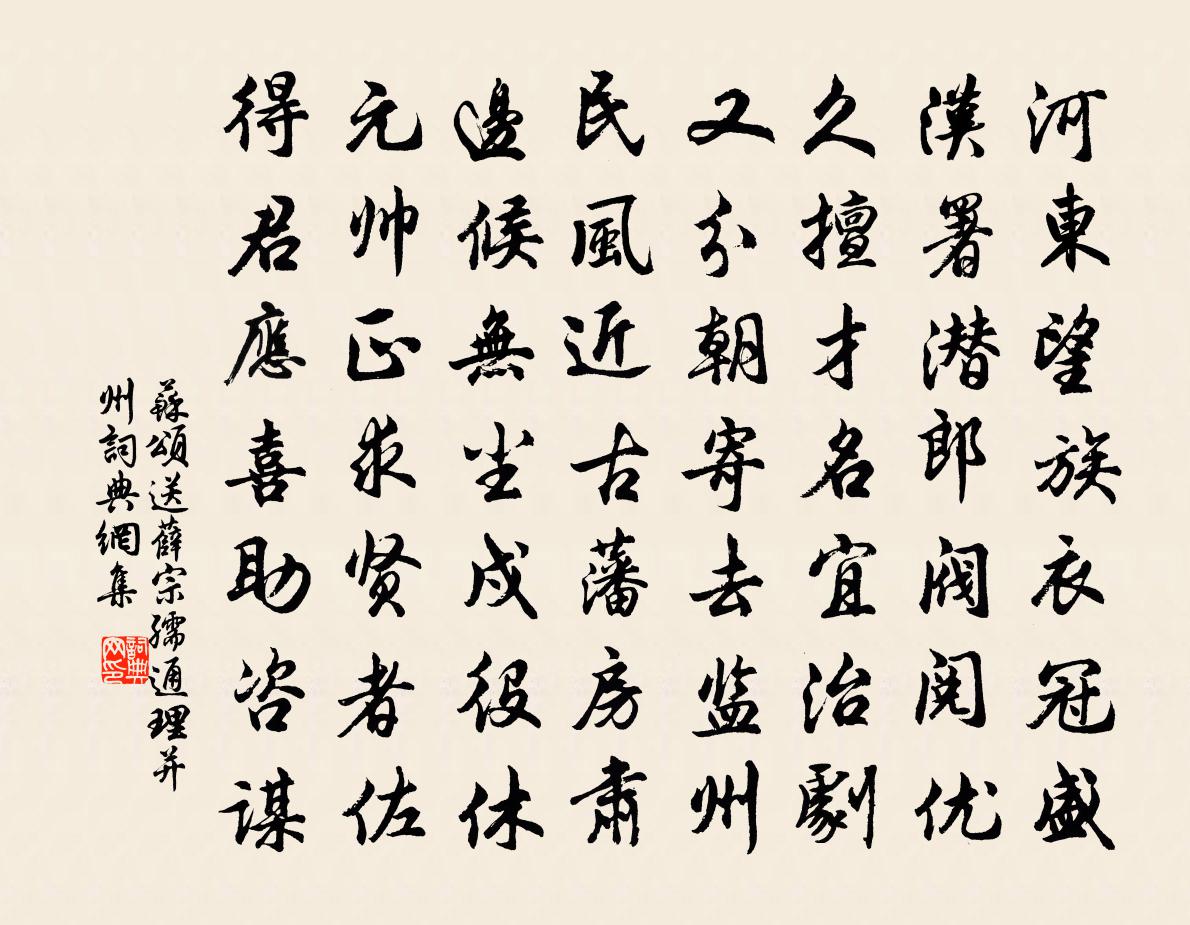 河東望族衣冠盛
漢署潜郎閥閱优
久擅才名宜治劇
又分朝寄去监州
民風近古藩房肅
邊候無尘戍役休
元帅正求贤者佐
得君應喜助咨謀
蘇頌送薛宗孺通理并
州詞典網集
詞典网印